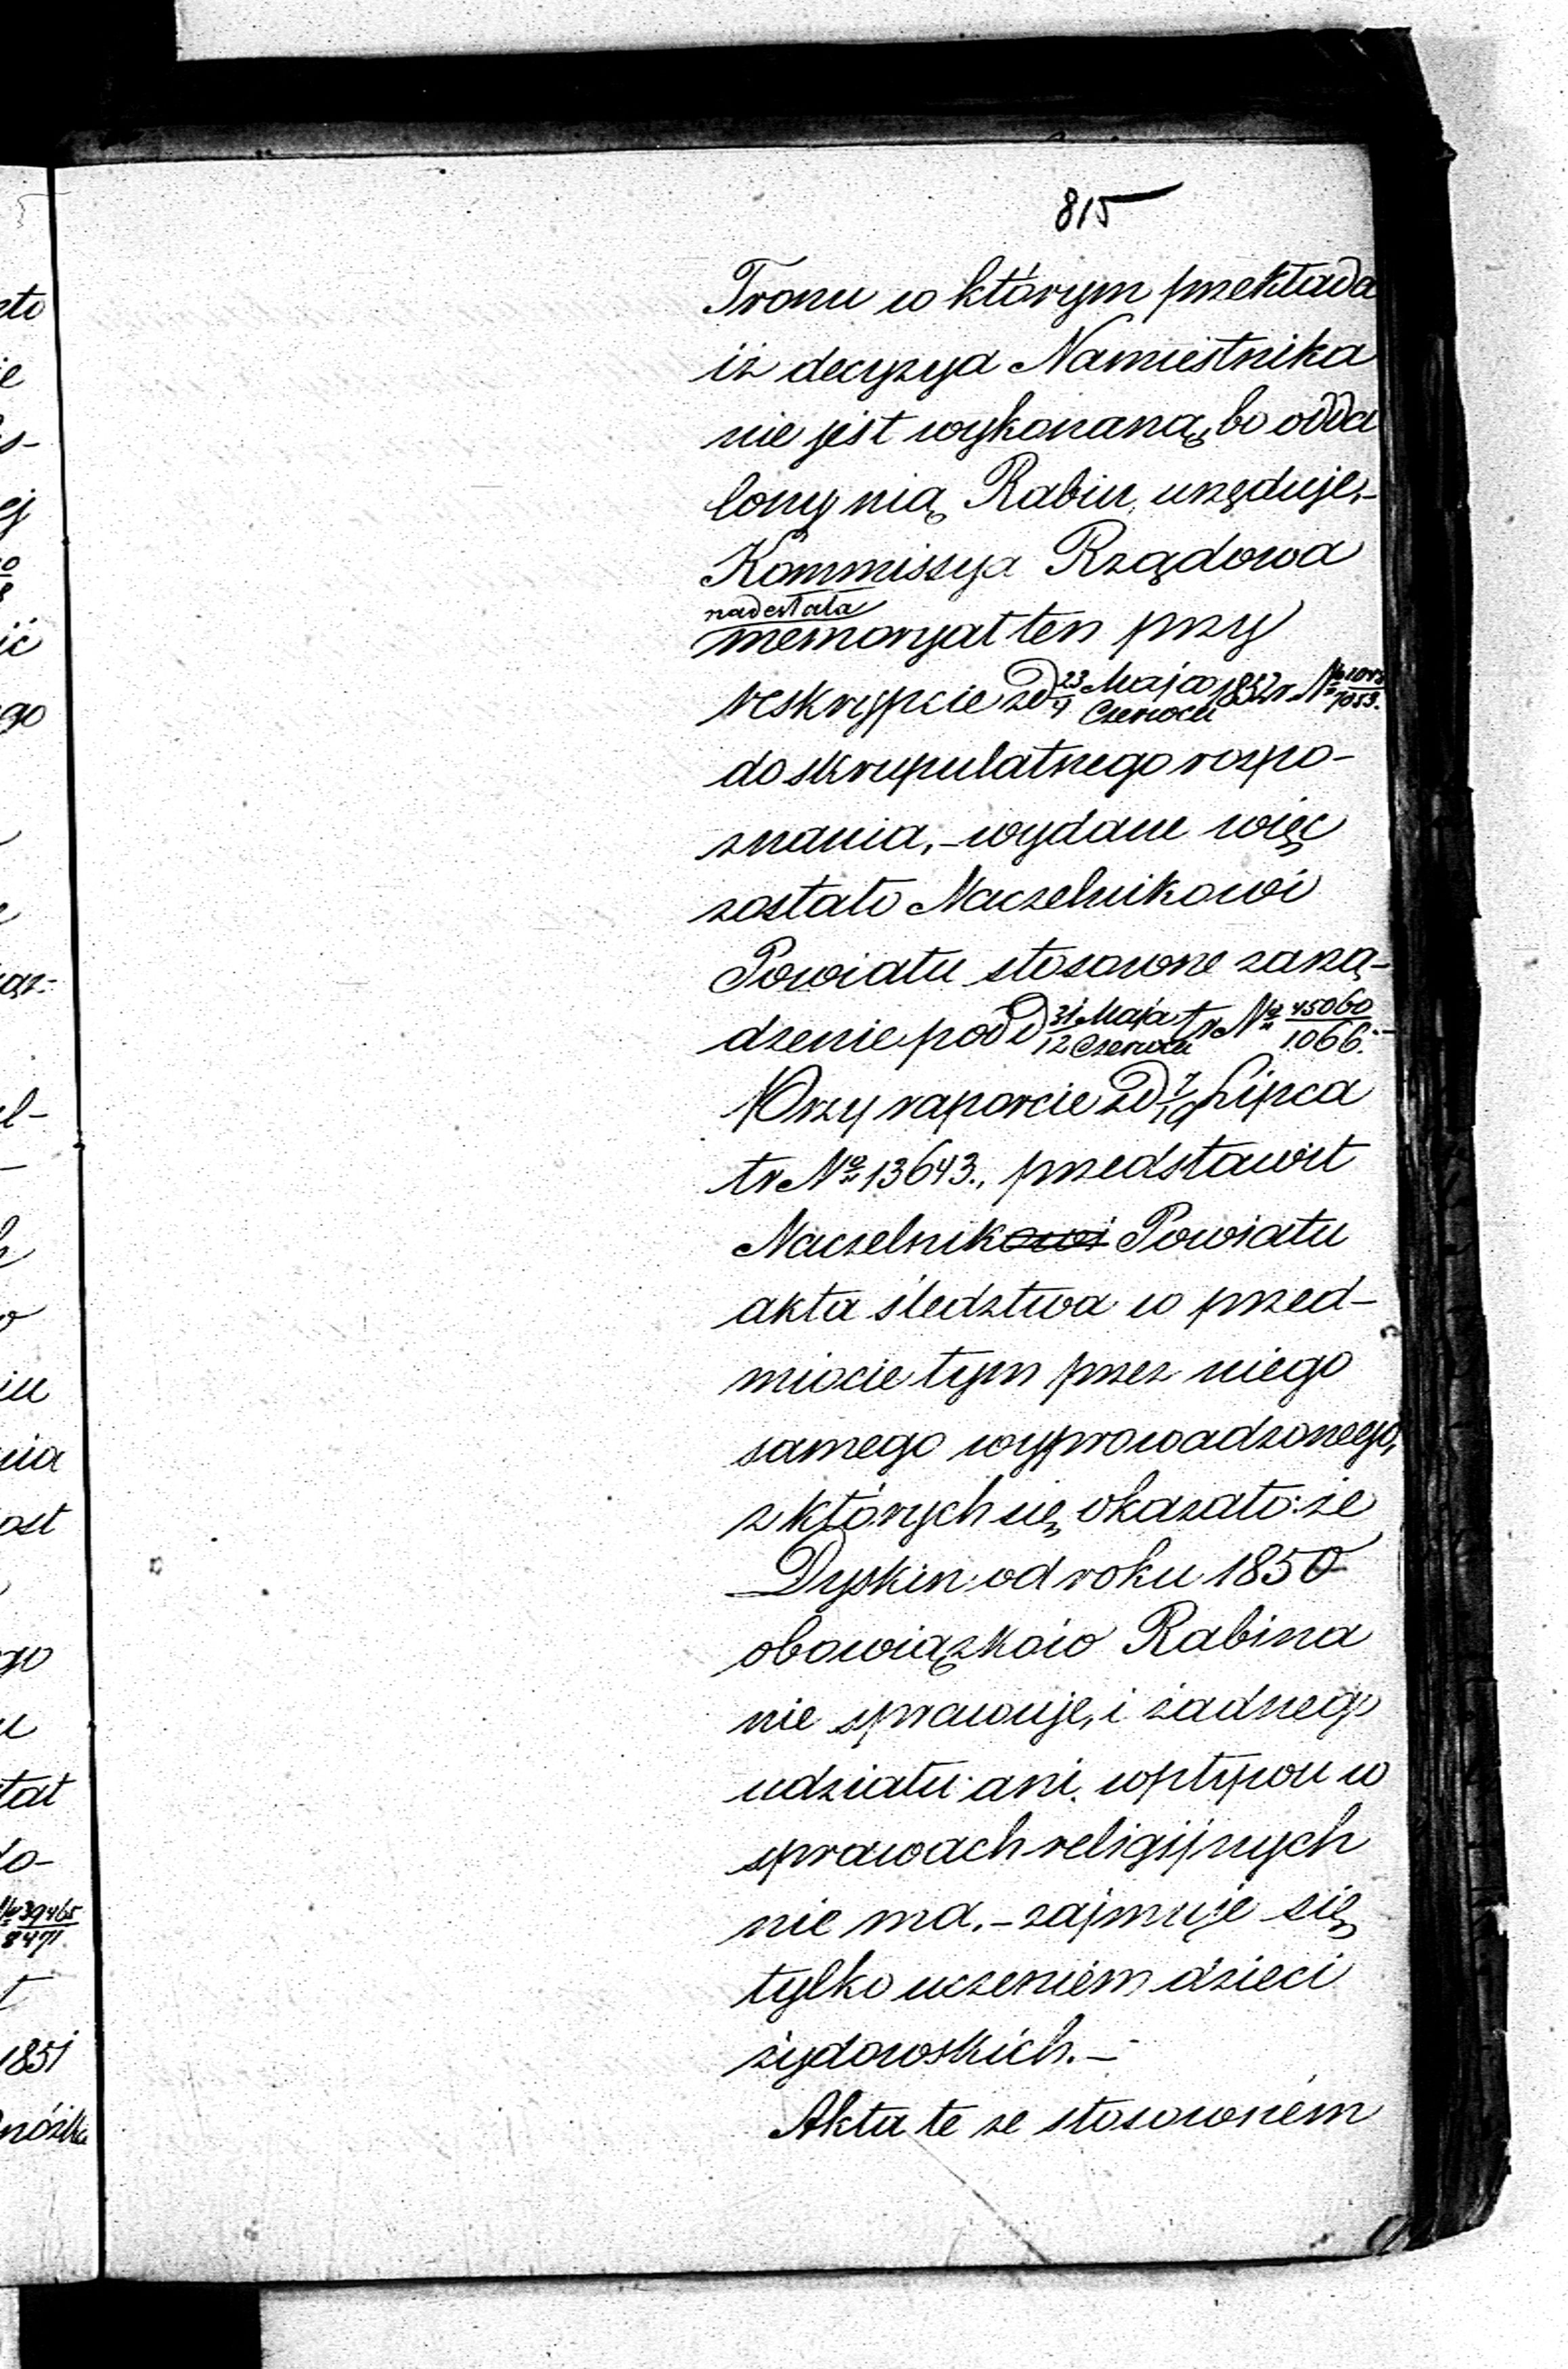 815
Tronu w którym przekłada
iż decyzya Namiestnika
nie jest wykonaną, bo odda
lony nią Rabin, urzęduje,-
Kommissya Rządowa
nadesłała
memoryał ten przy
reskrypcie zd 23/4 Maja/Czerwca 1852 r No
do skrupulatnego rozpo-
znania,- wydane więc
zostało Naczelnikowi
Powiatu stosowne zarzą-
dzenie pod d 31/12 Maja/Czerwca tr No 45060/1066.-
Przy raporcie zd 7/19 Lipca
tr No 13643., przedstawił
Naczelnikowi Powiatu
akta śledztwa w przed-
miocie tym przez niego
samego wyprowadzonego,
z których się okazało: że
Dyskin od roku 1850
obowiązków Rabina
nie sprawuje, i żadnego
udziału ani wpływu w
sprawach religijnych
nie ma,- zajmuje się
tylko uczeniem dzieci
żydowskich.-
Akta te ze stosowném